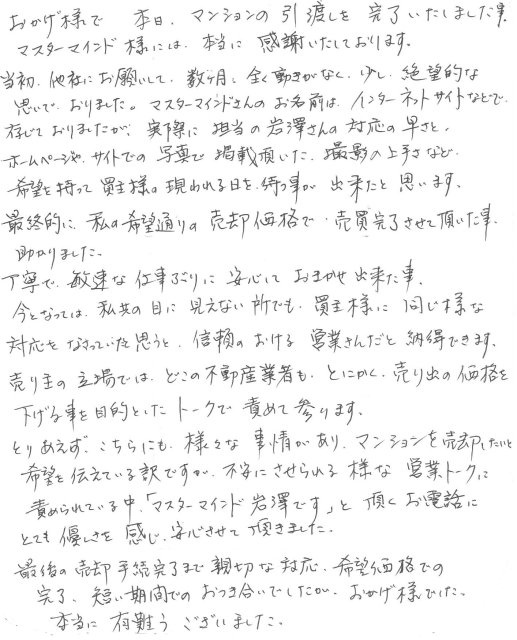 おかげ様で 本日、マンションの引渡しを 完了いたしました事、
マスターマインド様には、本当に 感謝いたしております。
当初、他社にお願いして、数ヶ月、全く動きがなく、少し、絶望的な
思いで、おりました。マスターマインドさんのお名前は、インターネットサイトなどで、
存じておりましたが、実際に 担当の岩澤さんの 対応の早さと、
ホームページや、サイトでの 写真で 掲載頂いた、撮影の上手さなど、
希望を持って 買主様の現われる日を、待つ事が 出来たと思います。
最終的に、私の希望通りの 売却価格で、売買完了させて頂いた事、
助かりました。
丁寧で、敏速な 仕事ぶりに 安心して おまかせ出来た事、
今となっては、私共の目に見えない所でも、買主様に 同じ様な
対応を なさっていたと思うと、信頼のおける 営業さんだと 納得できます。
売り主の立場では、どこの不動産業者も、とにかく、売り出の価格を
下げる事を目的とした トークで 責めて参ります。
とりあえず、こちらにも、様々な 事情があり、マンションを売却したいと
希望を伝えている訳ですが、不安にさせられる 様な 営業トークに
責められている中、「マスターマインド岩澤です」と 頂くお電話に
とても優しさを 感じ、安心させて頂きました。
最後の売却手続完了まで 親切な対応、希望価格での
完了、短い期間での おつき合いでしたが、おかげ様でした。
本当に 有難う ございました。